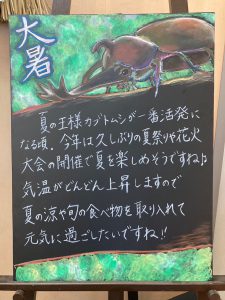 大暑
夏の王様カブトムシが一番活発に
なる頃、今年は久しぶりの夏祭りや花火
大会の開催で夏を楽しめそうですね♪
気温がどんどん上昇しますので
夏の涼や旬の食べ物を取り入れて
元気に過ごしたいですね!!